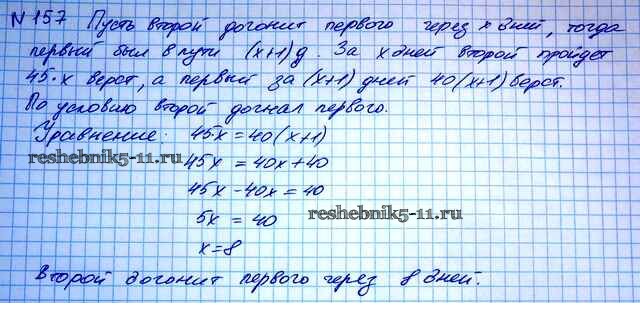 №157 Пусть второй догонит первого через x дней, тогда
первый был в пути (x+1) д. За x дней второй пройдет
45·x верст, а первый за (x+1) дней 40(x+1) верст.
По условию второй догнал первого.
Уравнение: 45·x = 40(x+1)
reshebnik5-11.ru 45x = 40x+40
45x - 40x = 40
5x = 40 reshebnik5-11.ru
x = 8
Второй догонит первого через 8 дней.